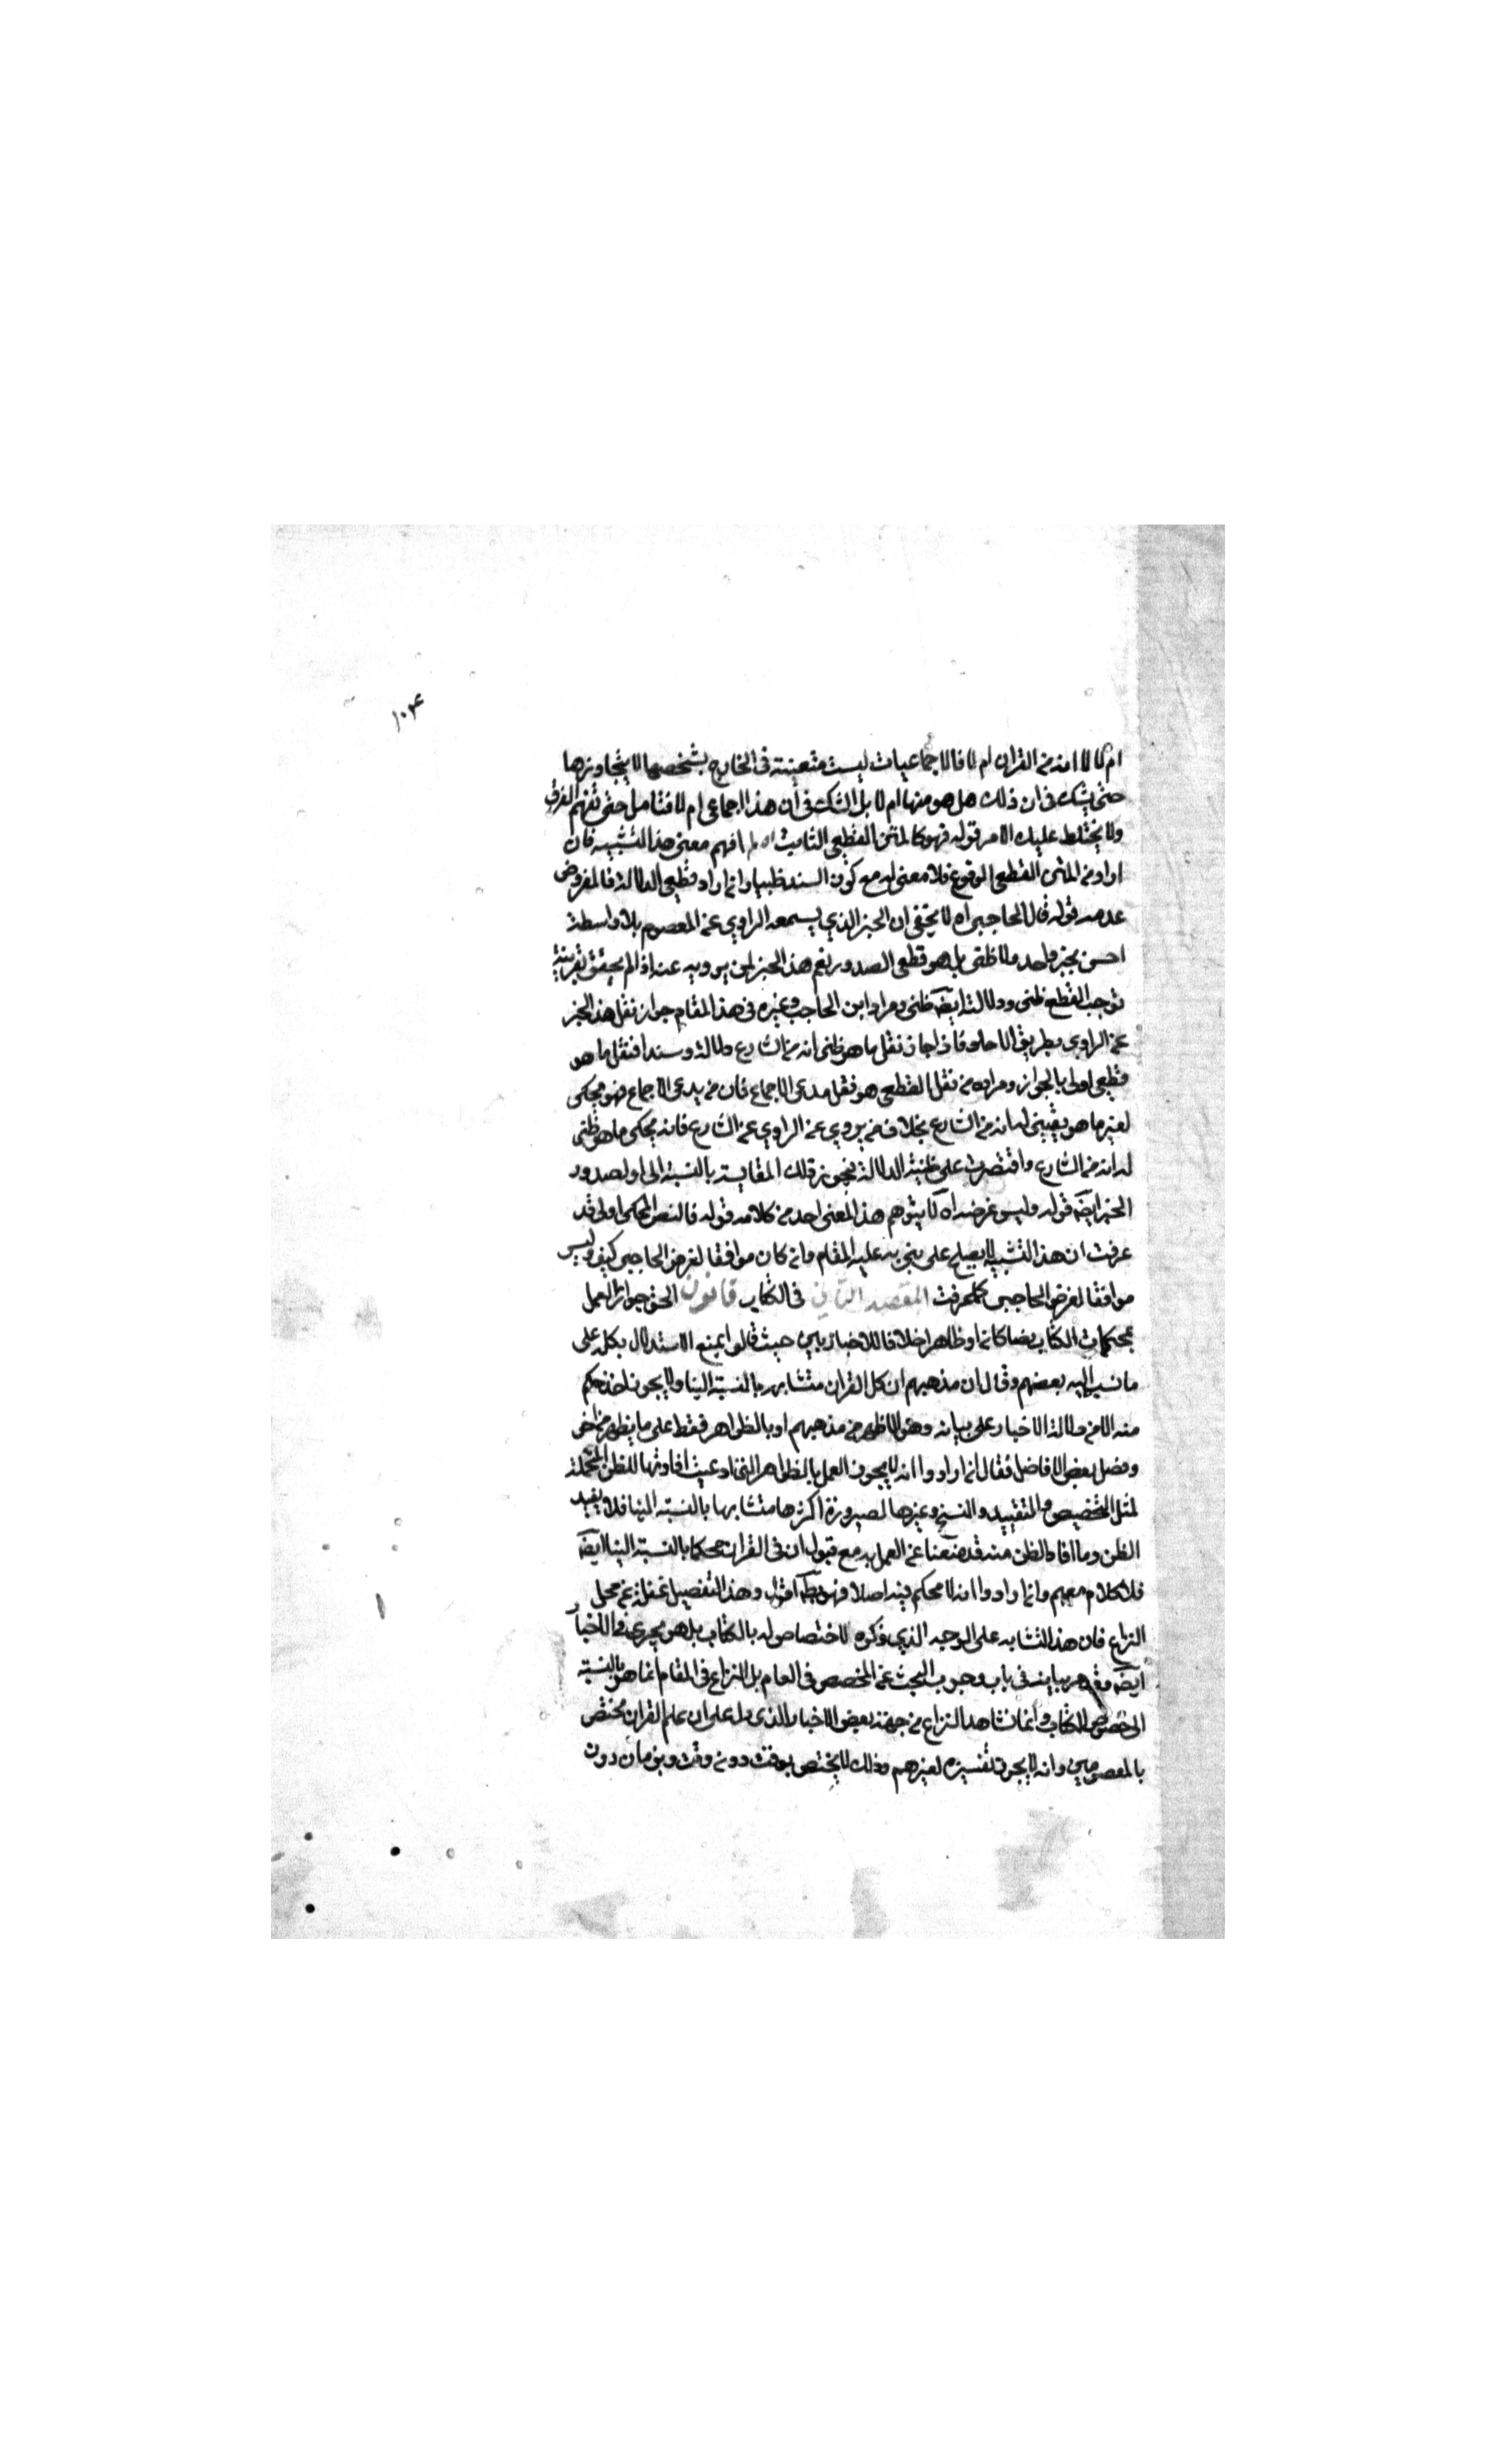 ١٠٤
ام لا لا انه من القران ام لا فالاجماعيات ليست متعينة فى الخارج بشخصها لا يتجاوزها
حتى يشك فى ان ذلك هل هو منها ام لا بل الشك فى أن هذا اجماعى ام لا فتامل حتى تفهم الفرق
ولا يختلط عليك الامر قوله فهو كالمتن القطعى الثابت اه لم افهم معنى هذا التشبيه فان
اراد من المتن القطعى الوقوع فلا معنى له مع كون السند ظنيا وان اراد قطعى الدلالة فالمفروض
عدمه قوله قال الحاجبى اه لا يخفى ان الخبر الذي يسمعه الراوي عن المعصوم بلا واسطة
احسن بخبر واحد ولا ظنى بل هو قطعى الصدور نعم هذا الخبر لمن يرويه عنه اذا لم يحقق بقرينة
توجب القطع ظنى ودلالته ايضا ظنى ومراد ابن الحاجب وغيره فى هذا المقام جواز نقل هذا الخبر
عن الراوي بطريق الاحاد فاذا جاز نقل ما هو ظنى انه من الشارع دلالة وسندا فنقل ما هو
قطعى اولى بالجواز ومراده من نقل القطعى هو نقل مدعى الاجماع فان من يدعى الاجماع فهو يحكى
لغيره ما هو يقينى له انه من الشارع بخلاف من يروي عن الراوي عن الشارع فانه يحكى ما هو ظنى
له انه من الشارع واقتصرت على ظنية الدلالة فيجوز تلك المقايسة بالنسبة الى اول صدور
الخبر ايضا قوله وليس غرضه اه لا يتوهم هذا المعنى احد من كلامه قوله فالنص المحكى اولى قد
عرفت ان هذا التشبيه لا يصلح على ينبى به عليه المقام وان كان موافقا لغرض الحاجبى كيف وليس
موافقا لغرض الحاجبى كما عرفت المقصد الثانى فى الكتاب قانون الحق جواز العمل
بمحكمات الكتاب نصا كان او ظاهرا خلافا للاخباريين حيث قالوا بمنع الاستدلال بكله على
ما نسب اليه بعضهم وقال ان مذهبهم ان كل القران متشابه بالنسبة الينا ولا يجوز اخذ حكم
منه الا من دلالة الاخبار على بيانه وهو الاظهر من مذهبهم او بالظواهر فقط على ما يظهر من اخرى
وفصل بعض الافاضل فقال ان ارادوا انه لا يجوز العمل بالظواهر التى ادعيت افادتها للظن المحتملة
لمثل التخصيص والتقييد والنسخ وغيرها لصيرورة اكثرها متشابها بالنسبة الينا فلا يفيد
الظن وما افاد الظن منه قد منعنا عن العمل به مع قبول ان فى القران محكما بالنسبة الينا ايضا
فلا كلام معهم وان ارادوا انه لا محكم فيه اصلا فهو بط اقول وهذا التفصيل غفلة عن محل
النزاع فان هذا التشابه على الوجه الذي ذكره لا اختصاص له بالكتاب بل هو يجرى فى الاخبار
ايضا وقد مر بيانه فى باب وجوب البحث عن المخصص فى العام بل النزاع فى المقام انما هو بالنسبة
الى خصوص الكتاب وانما نشا هذا النزاع من جهة بعض الاخبار الذى دل على ان علم القران مختص
بالمعصومين وانه لا يجوز تفسيره لغيرهم وذلك لا يختص بوقت دون وقت وبزمان دون